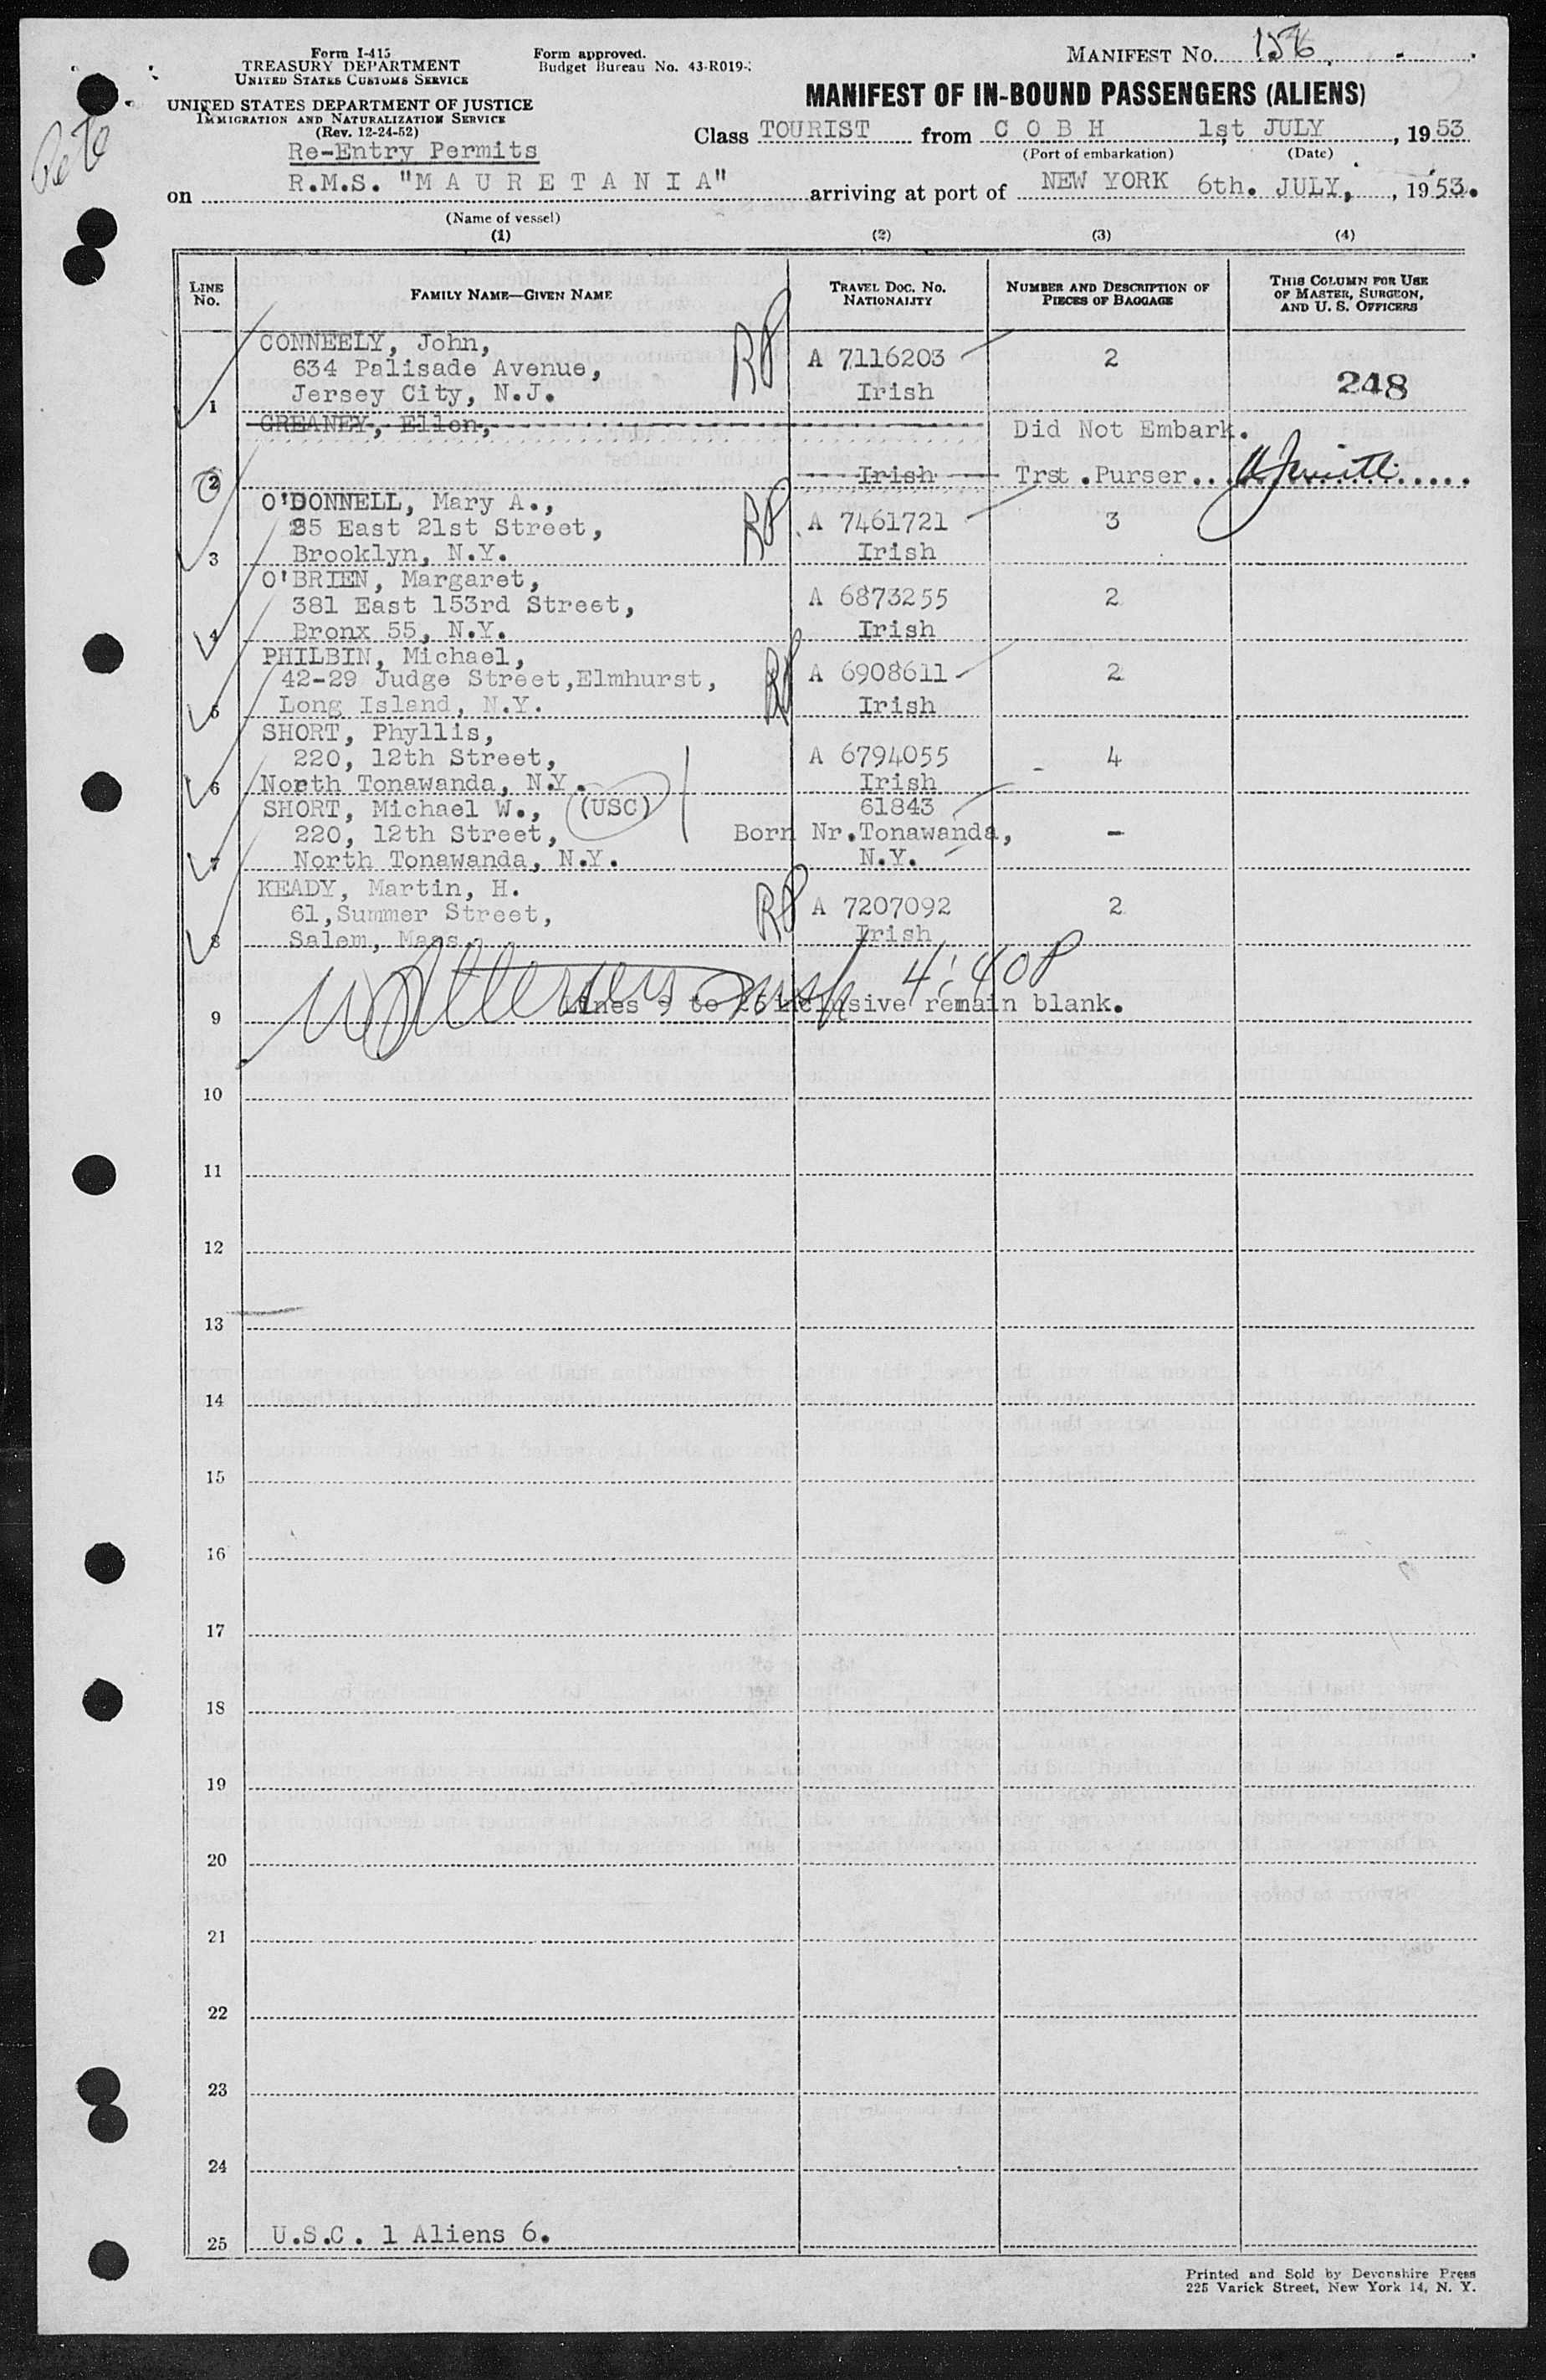 Form I-415
TREASURY DEPARTMENT
UNITED STATES CUSTOMS SERVICE
UNITED STATES DEPARTMENT OF JUSTICE
IMMIGRATION AND NATURALIZATION SERVICE
(Rev. 12-24-52)
Re-Entry Permits
Form approved.
Budget Bureau No. 43-R019-
MANIFEST No. 156
MANIFEST OF IN-BOUND PASSENGERS (ALIENS)
Class TOURIST from C O B H 1st JULY, 1953
(Port of embarkation) (Date)
Pete
on R.M.S. "M A U R E T A N I A" arriving at port of NEW YORK 6th. JULY, 1953.
(Name of vessel)
(1) (2) (3) (4)
LINE No. FAMILY NAME—GIVEN NAME TRAVEL DOC. No. NATIONALITY NUMBER AND DESCRIPTION OF PIECES OF BAGGAGE THIS COLUMN FOR USE OF MASTER, SURGEON, AND U. S. OFFICERS
CONNEELY, John, RP A 7116203 2
634 Palisade Avenue, Irish 248
1 Jersey City, N.J.
GREANEY, Ellen, Did Not Embark.
2 Irish Trst.Purser..
O'DONNELL, Mary A., RP A 7461721 3
25 East 21st Street, Irish
3 Brooklyn, N.Y.
O'BRIEN, Margaret, A 6873255 2
381 East 153rd Street,
4 Bronx 55, N.Y. Irish
PHILBIN, Michael, RP A 6908611 2
42-29 Judge Street,Elmhurst,
5 Long Island, N.Y. Irish
SHORT, Phyllis,
220, 12th Street, A 6794055 4
6 North Tonawanda, N.Y. Irish
SHORT, Michael W., (USC) 61843
220, 12th Street, Born Nr.Tonawanda, -
7 North Tonawanda, N.Y. N.Y.
KEADY, Martin, H. RP A 7207092 2
61,Summer Street,
8 Salem, Mass. Irish
4:40P
9 Lines 9 to 25 inclusive remain blank.
10
11
12
13
14
15
16
17
18
19
20
21
22
23
24
25 U.S.C. 1 Aliens 6.
Printed and Sold by Devonshire Press
225 Varick Street, New York 14, N. Y.